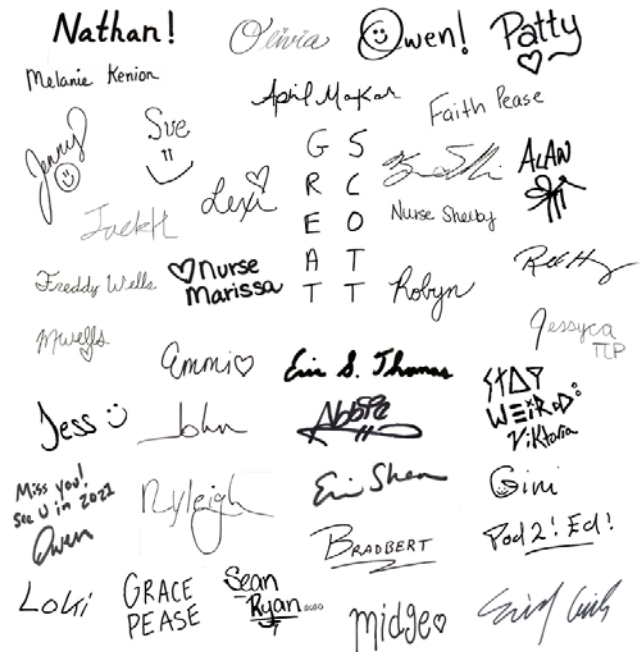 Nathan!
Olivia
Owen!
Patty
Melanie Kenion
April MaKar
Faith Pease
Jenny
Sue
Lexi
GREAT
SCOTT
ALAN
JackH
Nurse Shelby
Freddy Wells
Nurse
Marissa
Robyn
Mwells
Jessyca
TLP
Emmi
Eric S. Thomas
STAY
WEiRD!
Viktoria
Jess
John
Miss you!
See U in 2021
Owen
Ryleigh
Eri Shea
Gini
BRADBERT
Pod 2! Ed!
Loki
GRACE
PEASE
Sean
Ryan
Midge